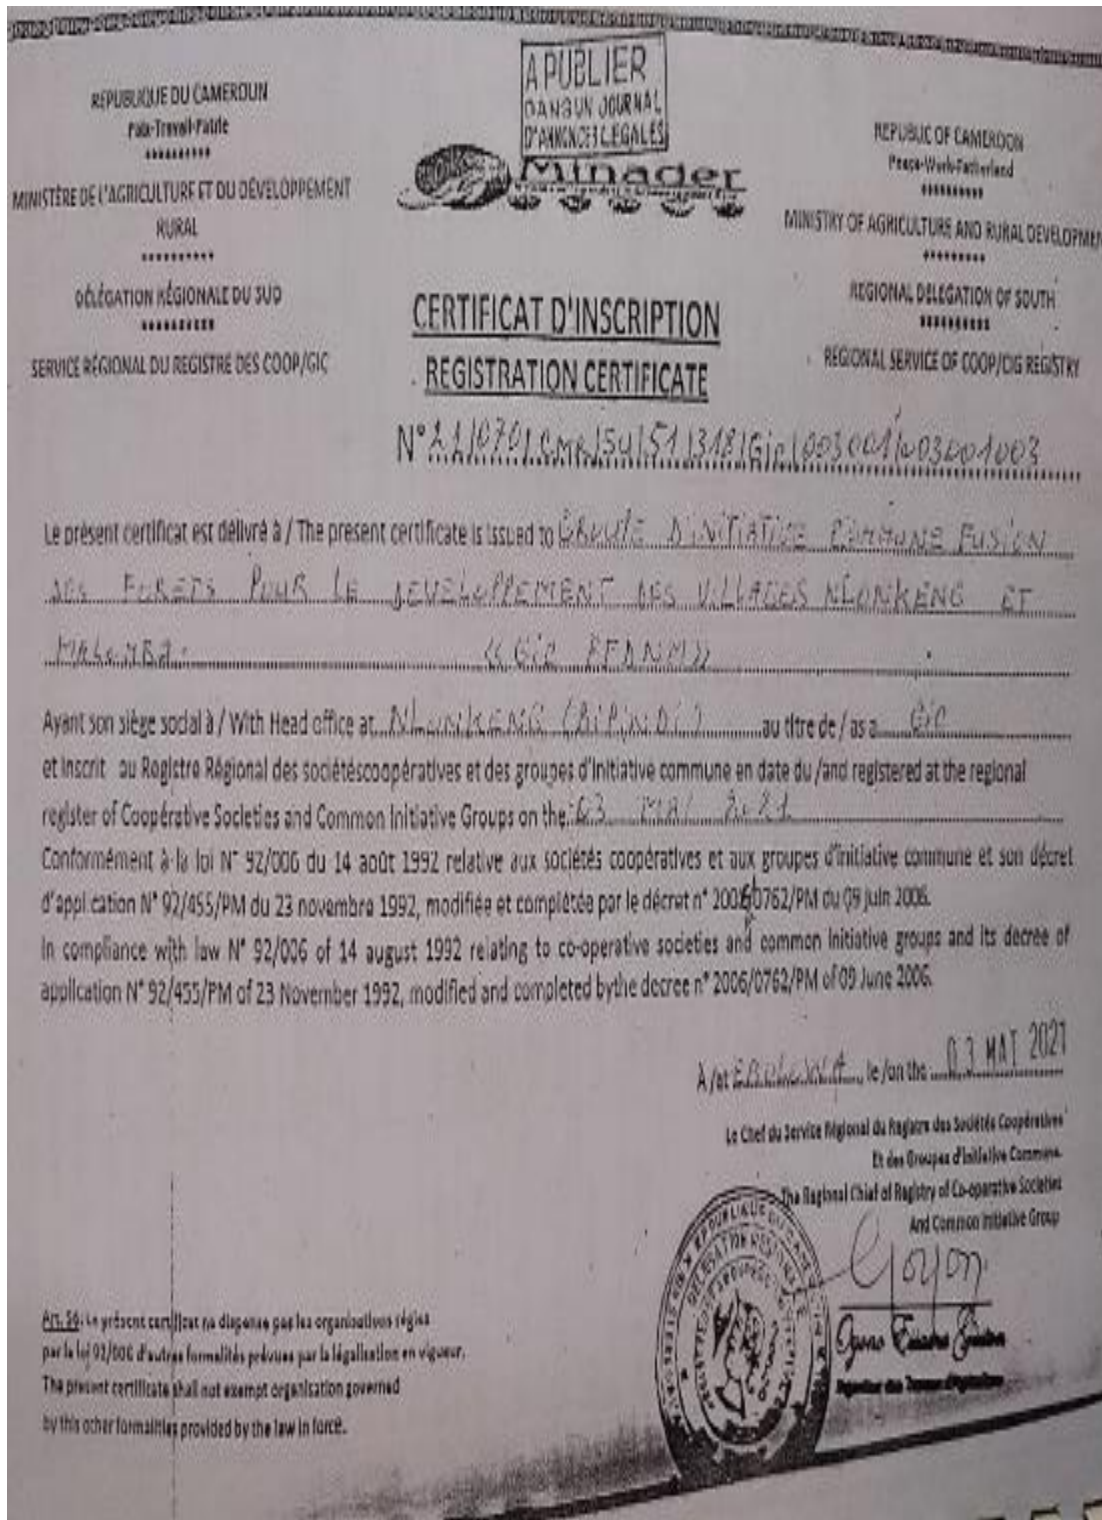 A PUBLIER
DANS UN JOURNAL
D'ANNONCES LEGALES
REPUBLIQUE DU CAMEROUN
Paix-Travail-Patrie
**********
MINISTÈRE DE L'AGRICULTURE ET DU DÉVELOPPEMENT
RURAL
**********
DÉLÉGATION RÉGIONALE DU SUD
**********
SERVICE RÉGIONAL DU REGISTRE DES COOP/GIC
Minader
REPUBLIC OF CAMEROON
Peace-Work-Fatherland
**********
MINISTRY OF AGRICULTURE AND RURAL DEVELOPMEN
**********
REGIONAL DELEGATION OF SOUTH
**********
REGIONAL SERVICE OF COOP/CIG REGISTRY
CERTIFICAT D'INSCRIPTION
REGISTRATION CERTIFICATE
N° 21/070/CMR/SU/51/318/GIC/003001/003001003
Le présent certificat est délivré à / The present certificate is issued to GROUPE D'INITIATIVE COMMUNE FUSION
DES FORETS POUR LE DEVELOPPEMENT DES VILLAGES NLONKENG ET
MALOMBA. «GIC FFDNM»
Ayant son siège social à / With Head office at NLONKENG (BIPINDI) au titre de / as a GIC
et inscrit au Registre Régional des sociétéscoopératives et des groupes d'initiative commune en date du /and registered at the regional
register of Coopérative Societies and Common Initiative Groups on the 03 MAI 2021
Conformément à la loi N° 92/006 du 14 août 1992 relative aux sociétés coopératives et aux groupes d'initiative commune et son décret
d'application N° 92/455/PM du 23 novembre 1992, modifiée et complétée par le décret n° 2006/0762/PM du 09 juin 2006.
In compliance with law N° 92/006 of 14 august 1992 relating to co-operative societies and common initiative groups and its decree of
application N° 92/455/PM of 23 November 1992, modified and completed bythe decree n° 2006/0762/PM of 09 June 2006.
A /at EBOLOWA, le /on the 03 MAI 2021
Le Chef du Service Régional du Registre des Sociétés Coopératives
Et des Groupes d'Initiative Commune.
The Regional Chief of Registry of Co-operative Societies
And Common Initiative Group
Art. 56: Le présent certificat ne dispense pas les organisations régies
par la loi 92/006 d'autres formalités prévues par la législation en vigueur.
The present certificate shall not exempt organisation governed
by this other formalities provided by the law in force.